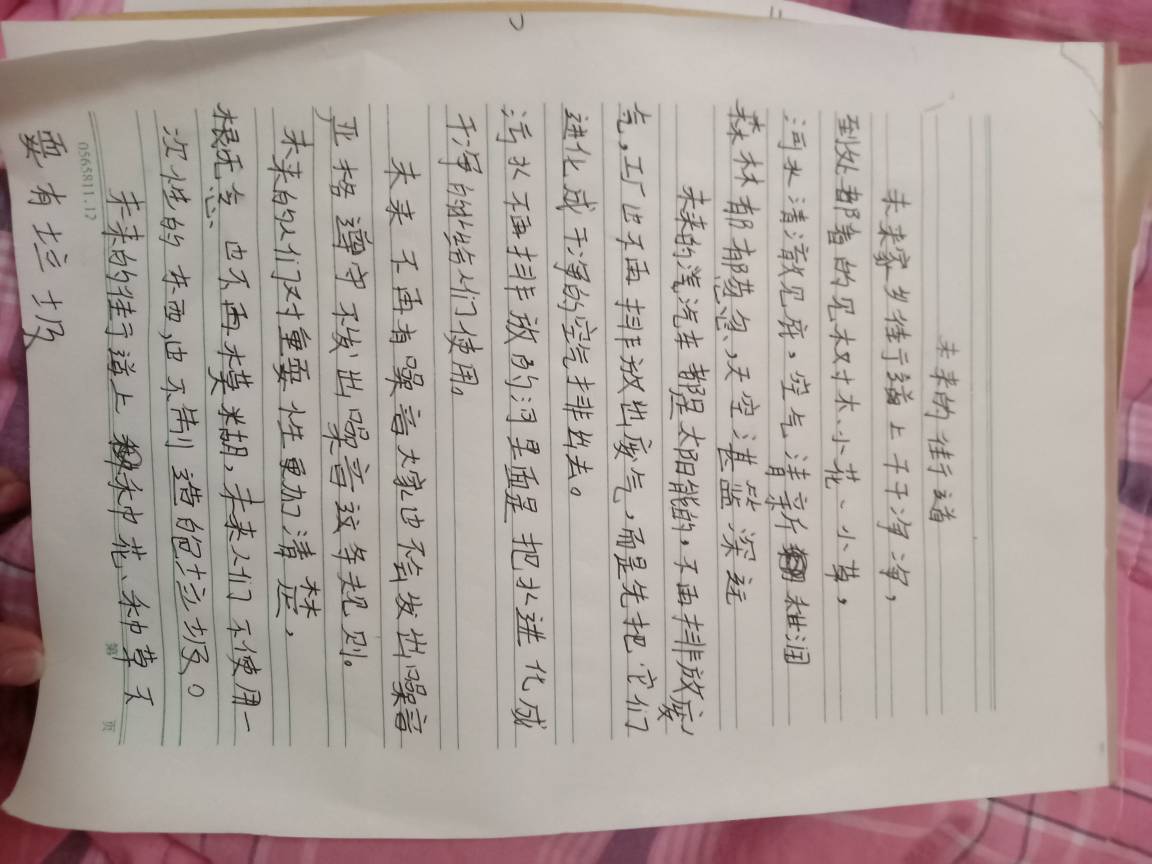 未来的街道
未来家乡街道上干干净净,
到处都着的见树木、小花、小草,
河水清澈见底。空气清新湿润
森林郁郁葱葱、天空湛蓝深远
未来的汽车都是太阳能的。不再排放废
气,工厂也不再排放出废气,而是先把它们
进化成干净的空气排出去。
污水不再排放的河里而是把水进化成
干净的给人们使用。
未来不再有噪音大家也不会发出噪音
严格遵守不发出噪音这条规则。
未来的人们对重要性更加清楚,
也不再模糊,未来人们不使用一
次性的东西,也不制造的垃圾。
未来的街道上种花、种草不
要有垃圾
0565811.12
第 页